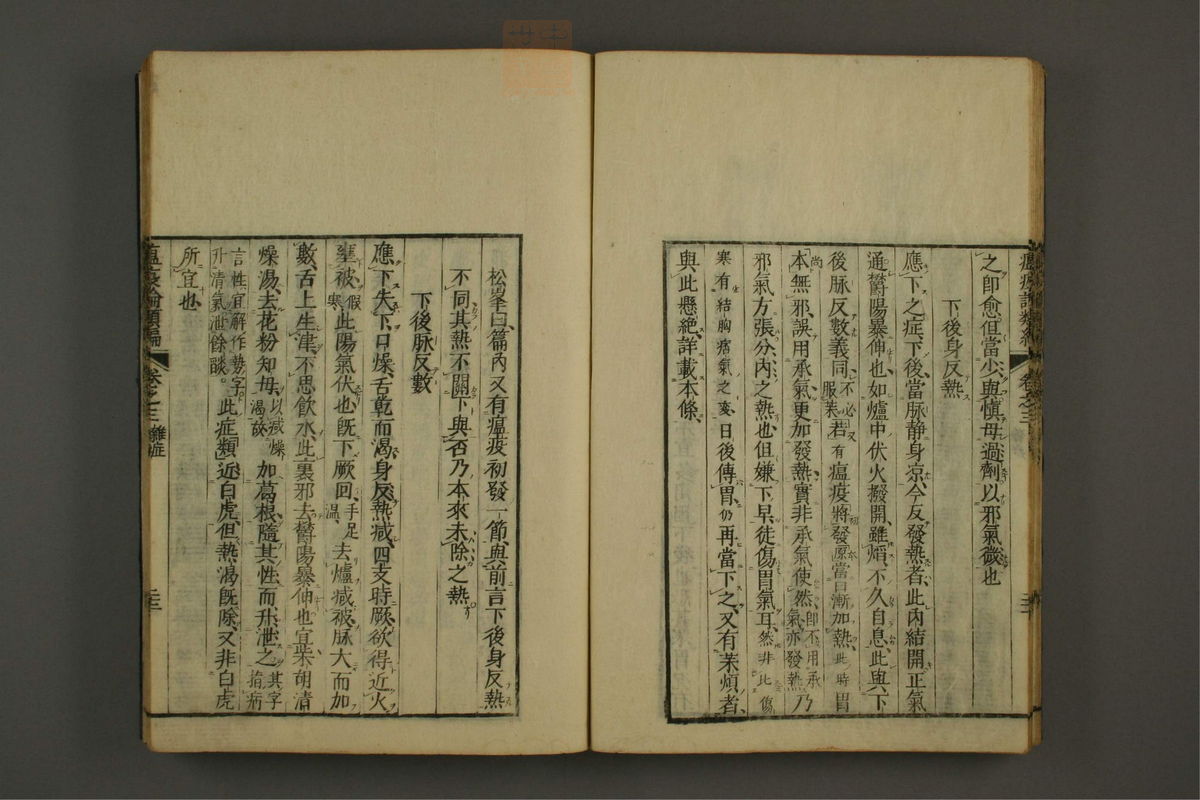 瘟疫論類編 卷之三
之即愈但當少與慎毋過劑以邪氣微也
下後身反熱
應下之症下後當脉静身凉今反發熱者此内結開正氣
通鬱陽暴伸也如爐中伏火撥開雖焰不久自息此與下
後脉反數義同不必服柴若又有瘟疫將發原當日漸加熱此時胃
尚本無邪誤用承氣更加發熱實非承氣使然即不用承氣亦發熱乃
邪氣方張分内之熱也但嫌下早徒傷胃氣耳然非比傷
寒有結胸痞氣之変日後傳胃仍再當下之又有藥煩者
與此懸絶詳載本條
松峯曰篇内又有瘟疫初發一節與前言下後身反熱
不同其熱不關下與否乃本來未除之熱
下後脉反數
應下失下口燥舌乾而渴身反熱减四支時厥欲得近火
壅被假寒此陽氣伏也既下厥回手足温去爐减被脉大而加
數舌上生津不思飲水此裏邪去鬱陽暴伸也宜柴胡清
燥湯去花粉知母以减燥渴故加葛根隨其性而升泄之其字指病
言性宜解作勢字升清氣泄餘燄此症類近白虎但熱渴既除又非白虎
所宜也
瘟疫論類編 卷之三 雜症